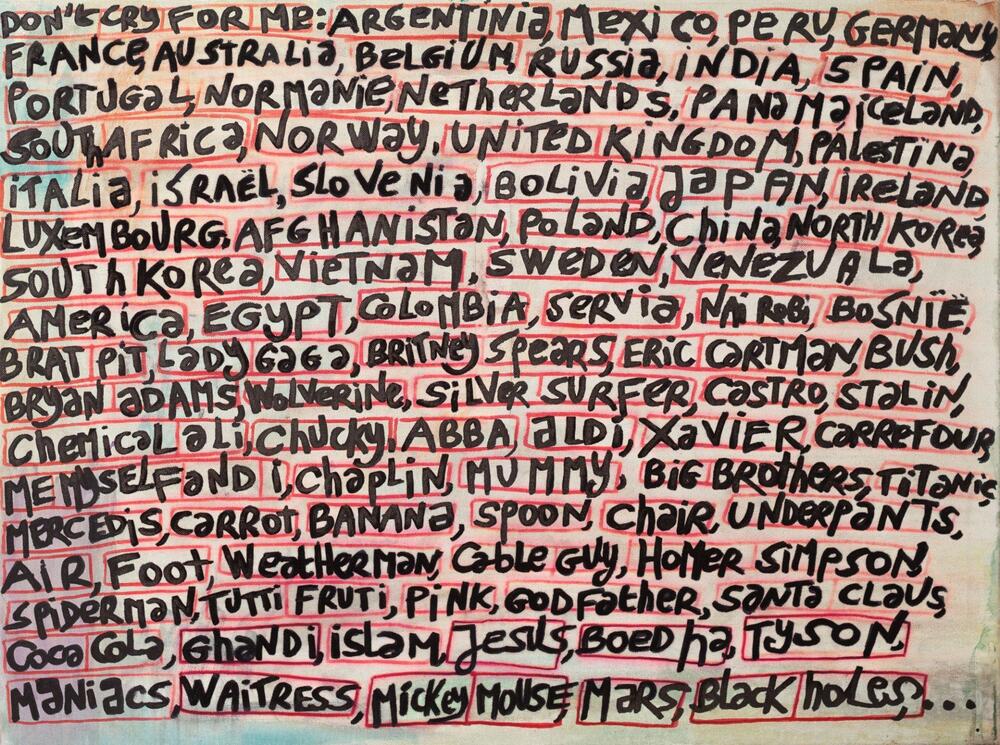 DON't CRY FOR ME: ARGENTINIa, MEXICO, PERU, GERMANY,
FRANCE, AUSTRALIa, BELGIUM, RUSSIA, INDIA, SPAIN,
PORTUGAL, NORMANIE, NETHERLANDS, PANAMA, ICELAND,
SOUTH AFRICA, NORWAY, UNITED KINGDOM, PALESTINA,
ITALIA, ISRAËL, SLOVENIA, BOLIVIA, JAPAN, IRELAND,
LUXEMBOURG, AFGHANISTAN, POLAND, CHINA, NORTH KOREA,
SOUTH KOREA, VIETNAM, SWEDEN, VENEZUALA,
AMERICA, EGYPT, COLOMBIA, SERVIA, NAIROBI, BOSNIË,
BRAT PIT, LADY GAGA, BRITNEY SPEARS, ERIC CARTMAN, BUSH,
BRYAN ADAMS, WOLVERINE, SILVER SURFER, CASTRO, STALIN,
CHEMICAL ALI, CHUCKY, ABBA, ALDI, XAVIER, CARREFOUR,
ME MYSELF AND I, CHAPLIN, MUMMY, BIG BROTHERS, TITANIC,
MERCEDIS, CARROT, BANANA, SPOON, CHAIR, UNDERPANTS,
AIR, FOOT, WEATHERMAN, CABLE GUY, HOMER SIMPSON,
SPIDERMAN, TUTTI FRUTI, PINK, GODFATHER, SANTA CLAUS,
COCA COLA, GHANDI, ISLAM, JESUS, BOEDHA, TYSON,
MANIACS, WAITRESS, MICKEY MOUSE, MARS, BLACK HOLES,...